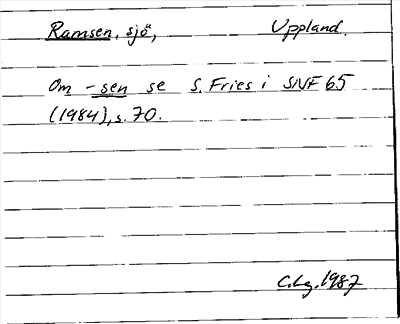 Ramsen, sjö, Uppland.
Om -sen se S. Fries i SNF 65
(1984), s. 70.
C.Lg. 1987